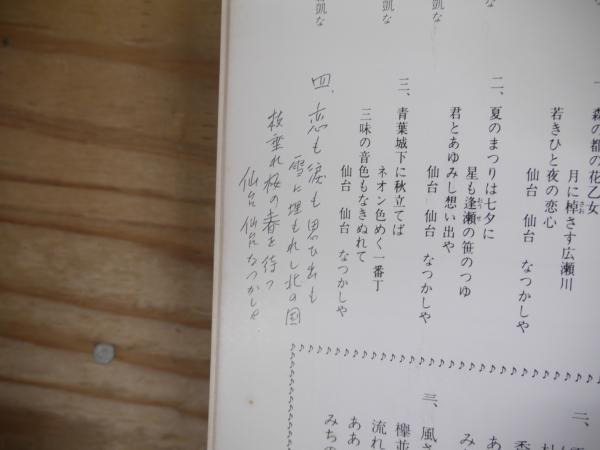 一、森の都の花乙女
月に棹さす広瀬川
若きひと夜の恋心
仙台 仙台 なつかしや
二、夏のまつりは七夕に
星も逢瀬の笹のつゆ
君とあゆみし想い出や
仙台 仙台 なつかしや
三、青葉城下に秋立てば
ネオン色めく一番丁
三味の音色もなきぬれて
仙台 仙台 なつかしや
四、恋も涙も思ひ出も
雪に埋もれし北の国
枝垂れ桜の春を待つ
仙台 仙台 なつかしや
凱な
凱な
二、
三、風さ
欅並
流れ
ああ
みちの